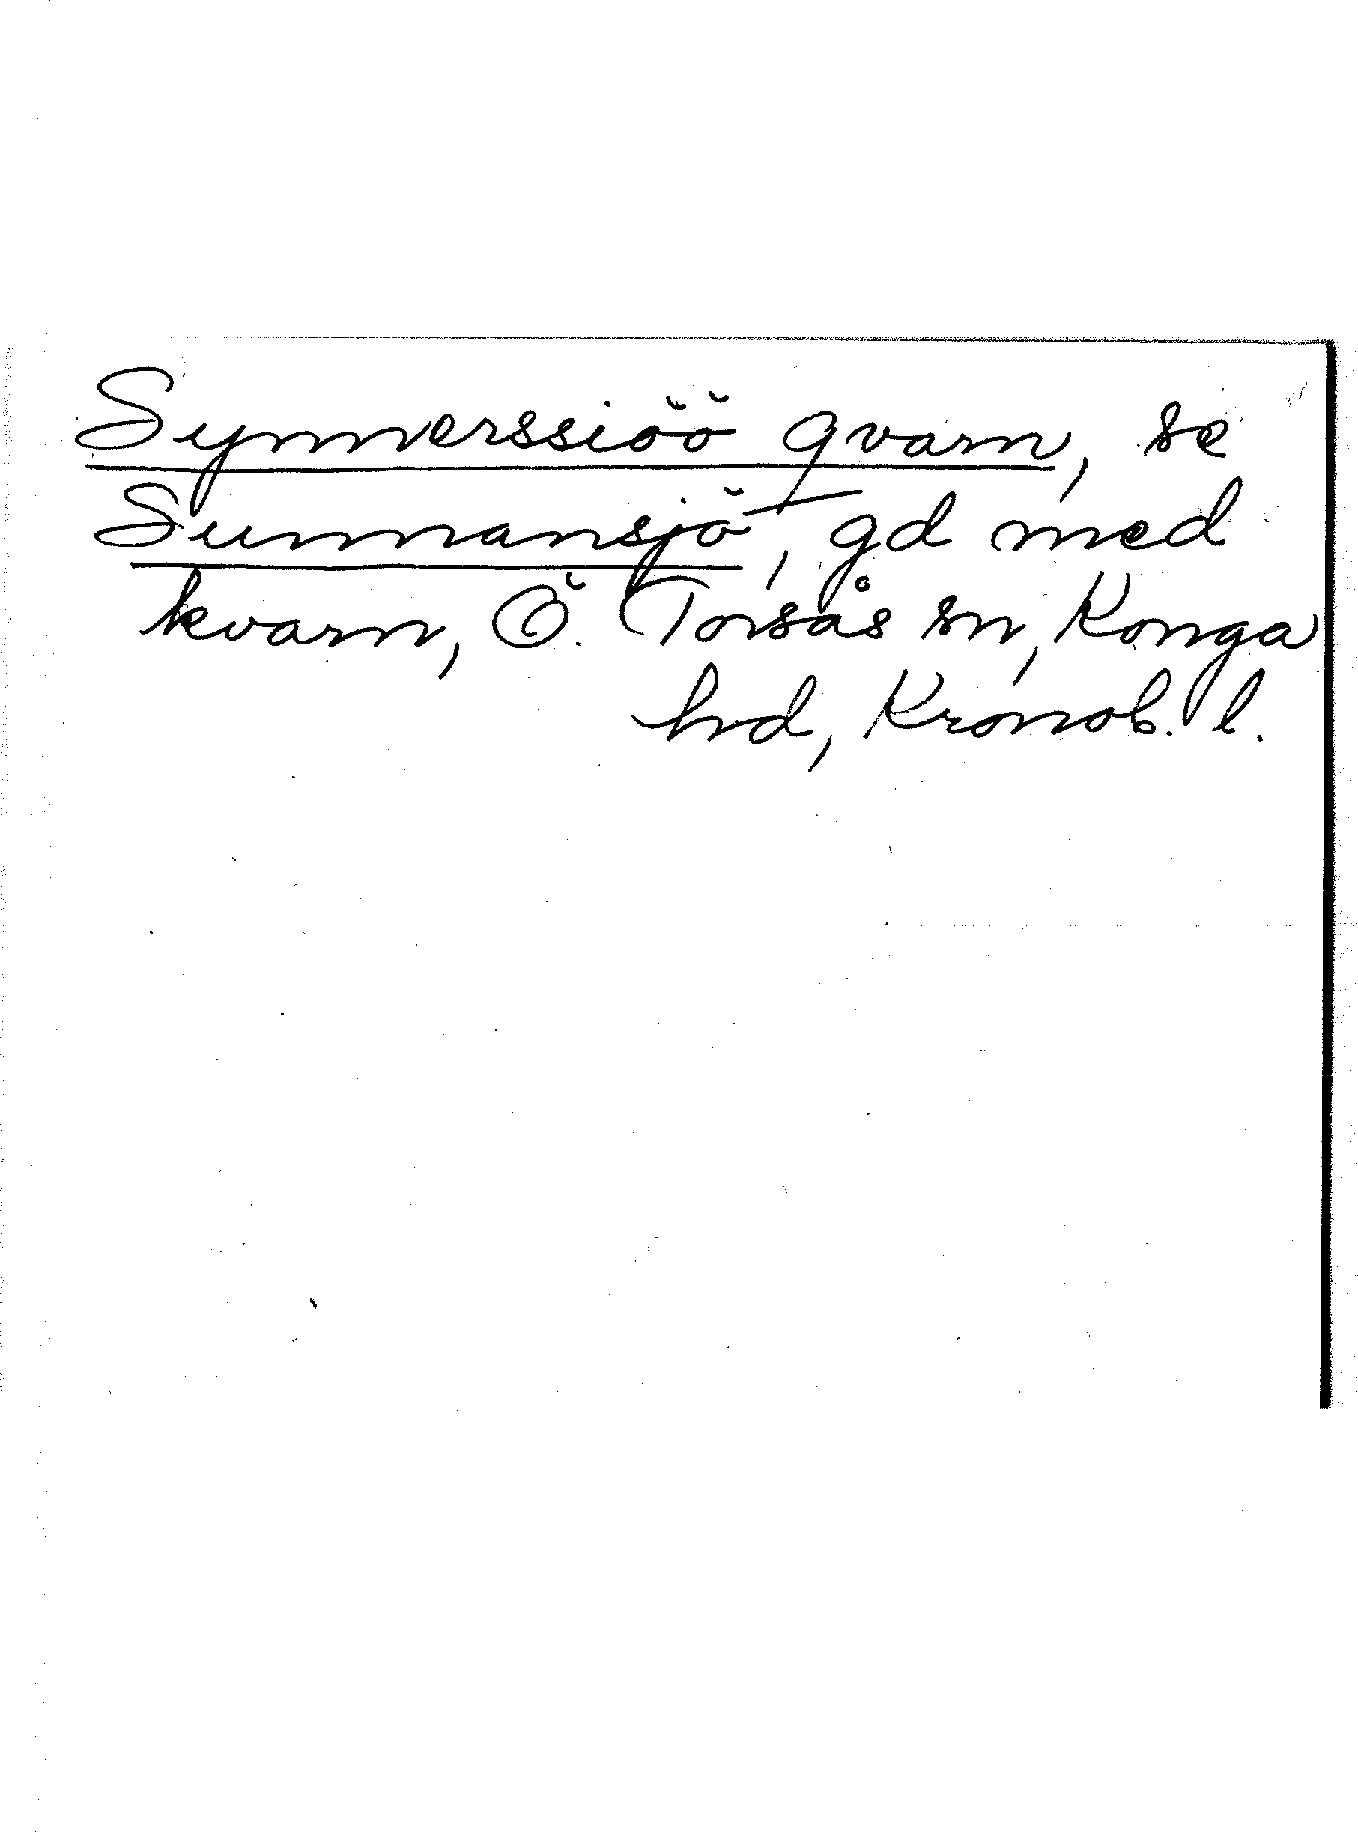 Synnerssiöö qvarn, se
Sunnansjö, gd med
kvarn, Ö. Torsås sn, Konga
hd, Kronob. l.